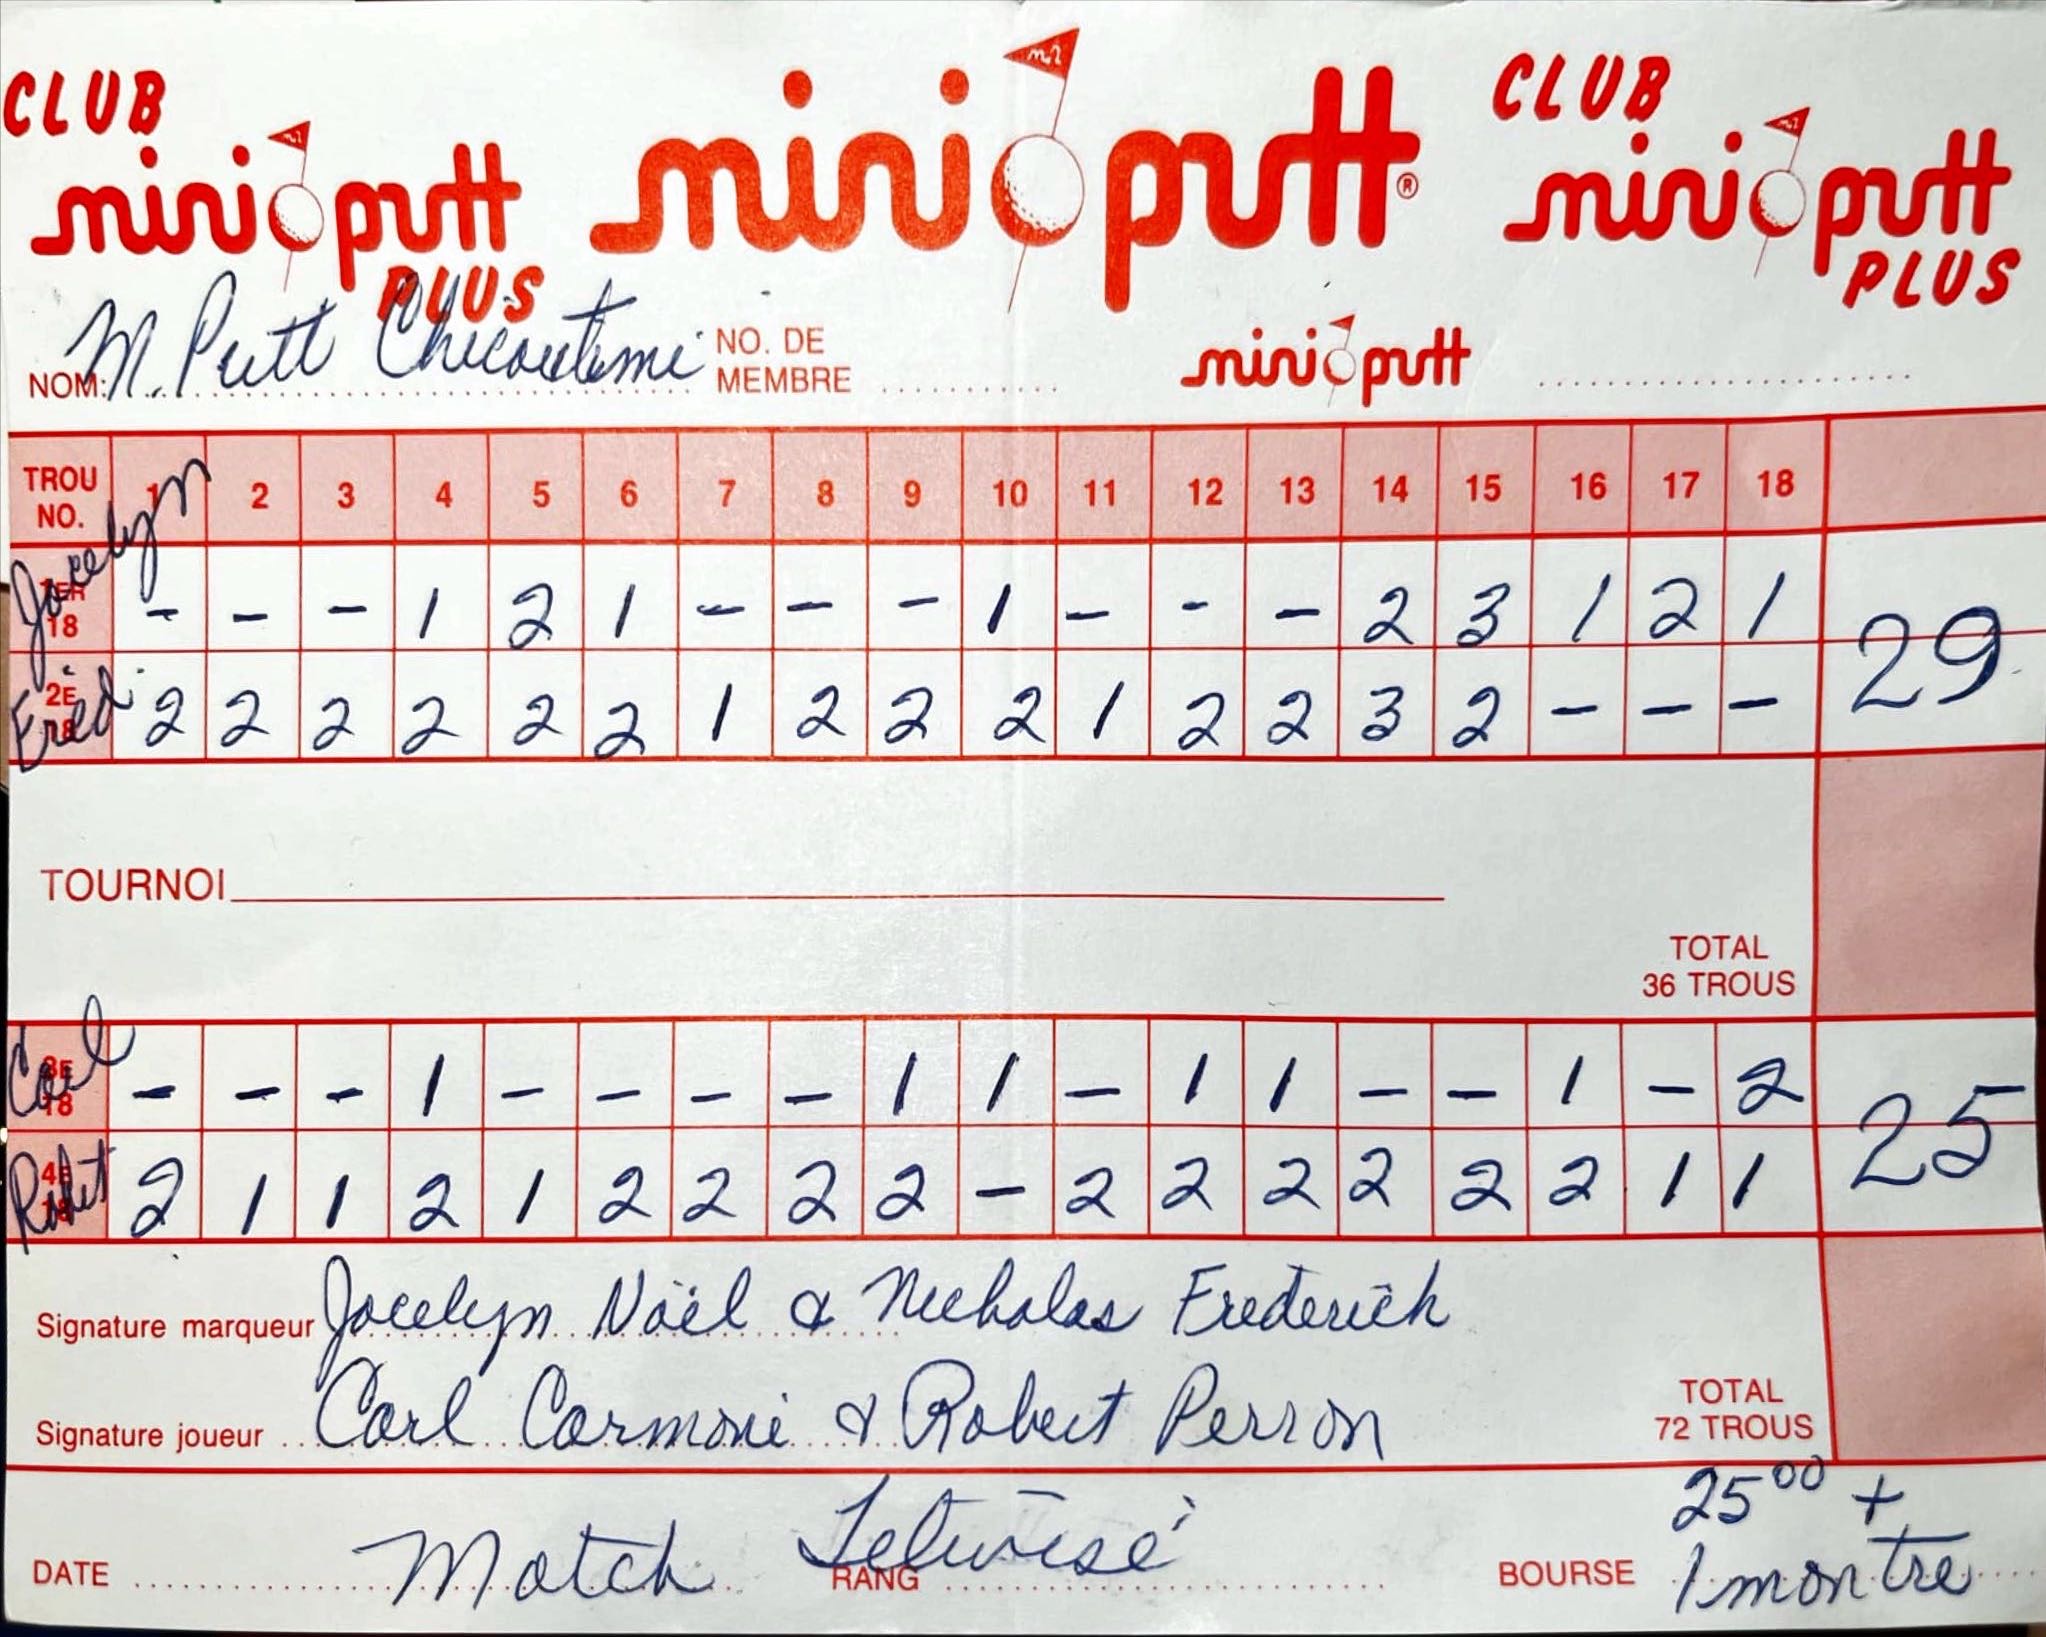 CLUB mini putt PLUS
mini putt®
CLUB mini putt PLUS
NOM: M. Putt Chicoutimi NO. DE MEMBRE mini putt
TROU NO. 1 2 3 4 5 6 7 8 9 10 11 12 13 14 15 16 17 18
Jocelyn 1ER 18 - - - 1 2 1 - - - 1 - - - 2 3 1 2 1
29
Fréd 2E 18 2 2 2 2 2 2 1 2 2 2 1 2 2 3 2 - - -
TOURNOI
TOTAL
36 TROUS
Carl 3E 18 - - - 1 - - - - 1 1 - 1 1 - - 1 - 2
25
Robert 4E 18 2 1 1 2 1 2 2 2 2 - 2 2 2 2 2 2 1 1
Signature marqueur Jocelyn Noël & Nicholas Frederick
Signature joueur Carl Carmoni & Robert Perron
TOTAL
72 TROUS
25 00 +
DATE Match Télévisé RANG BOURSE 1 montre